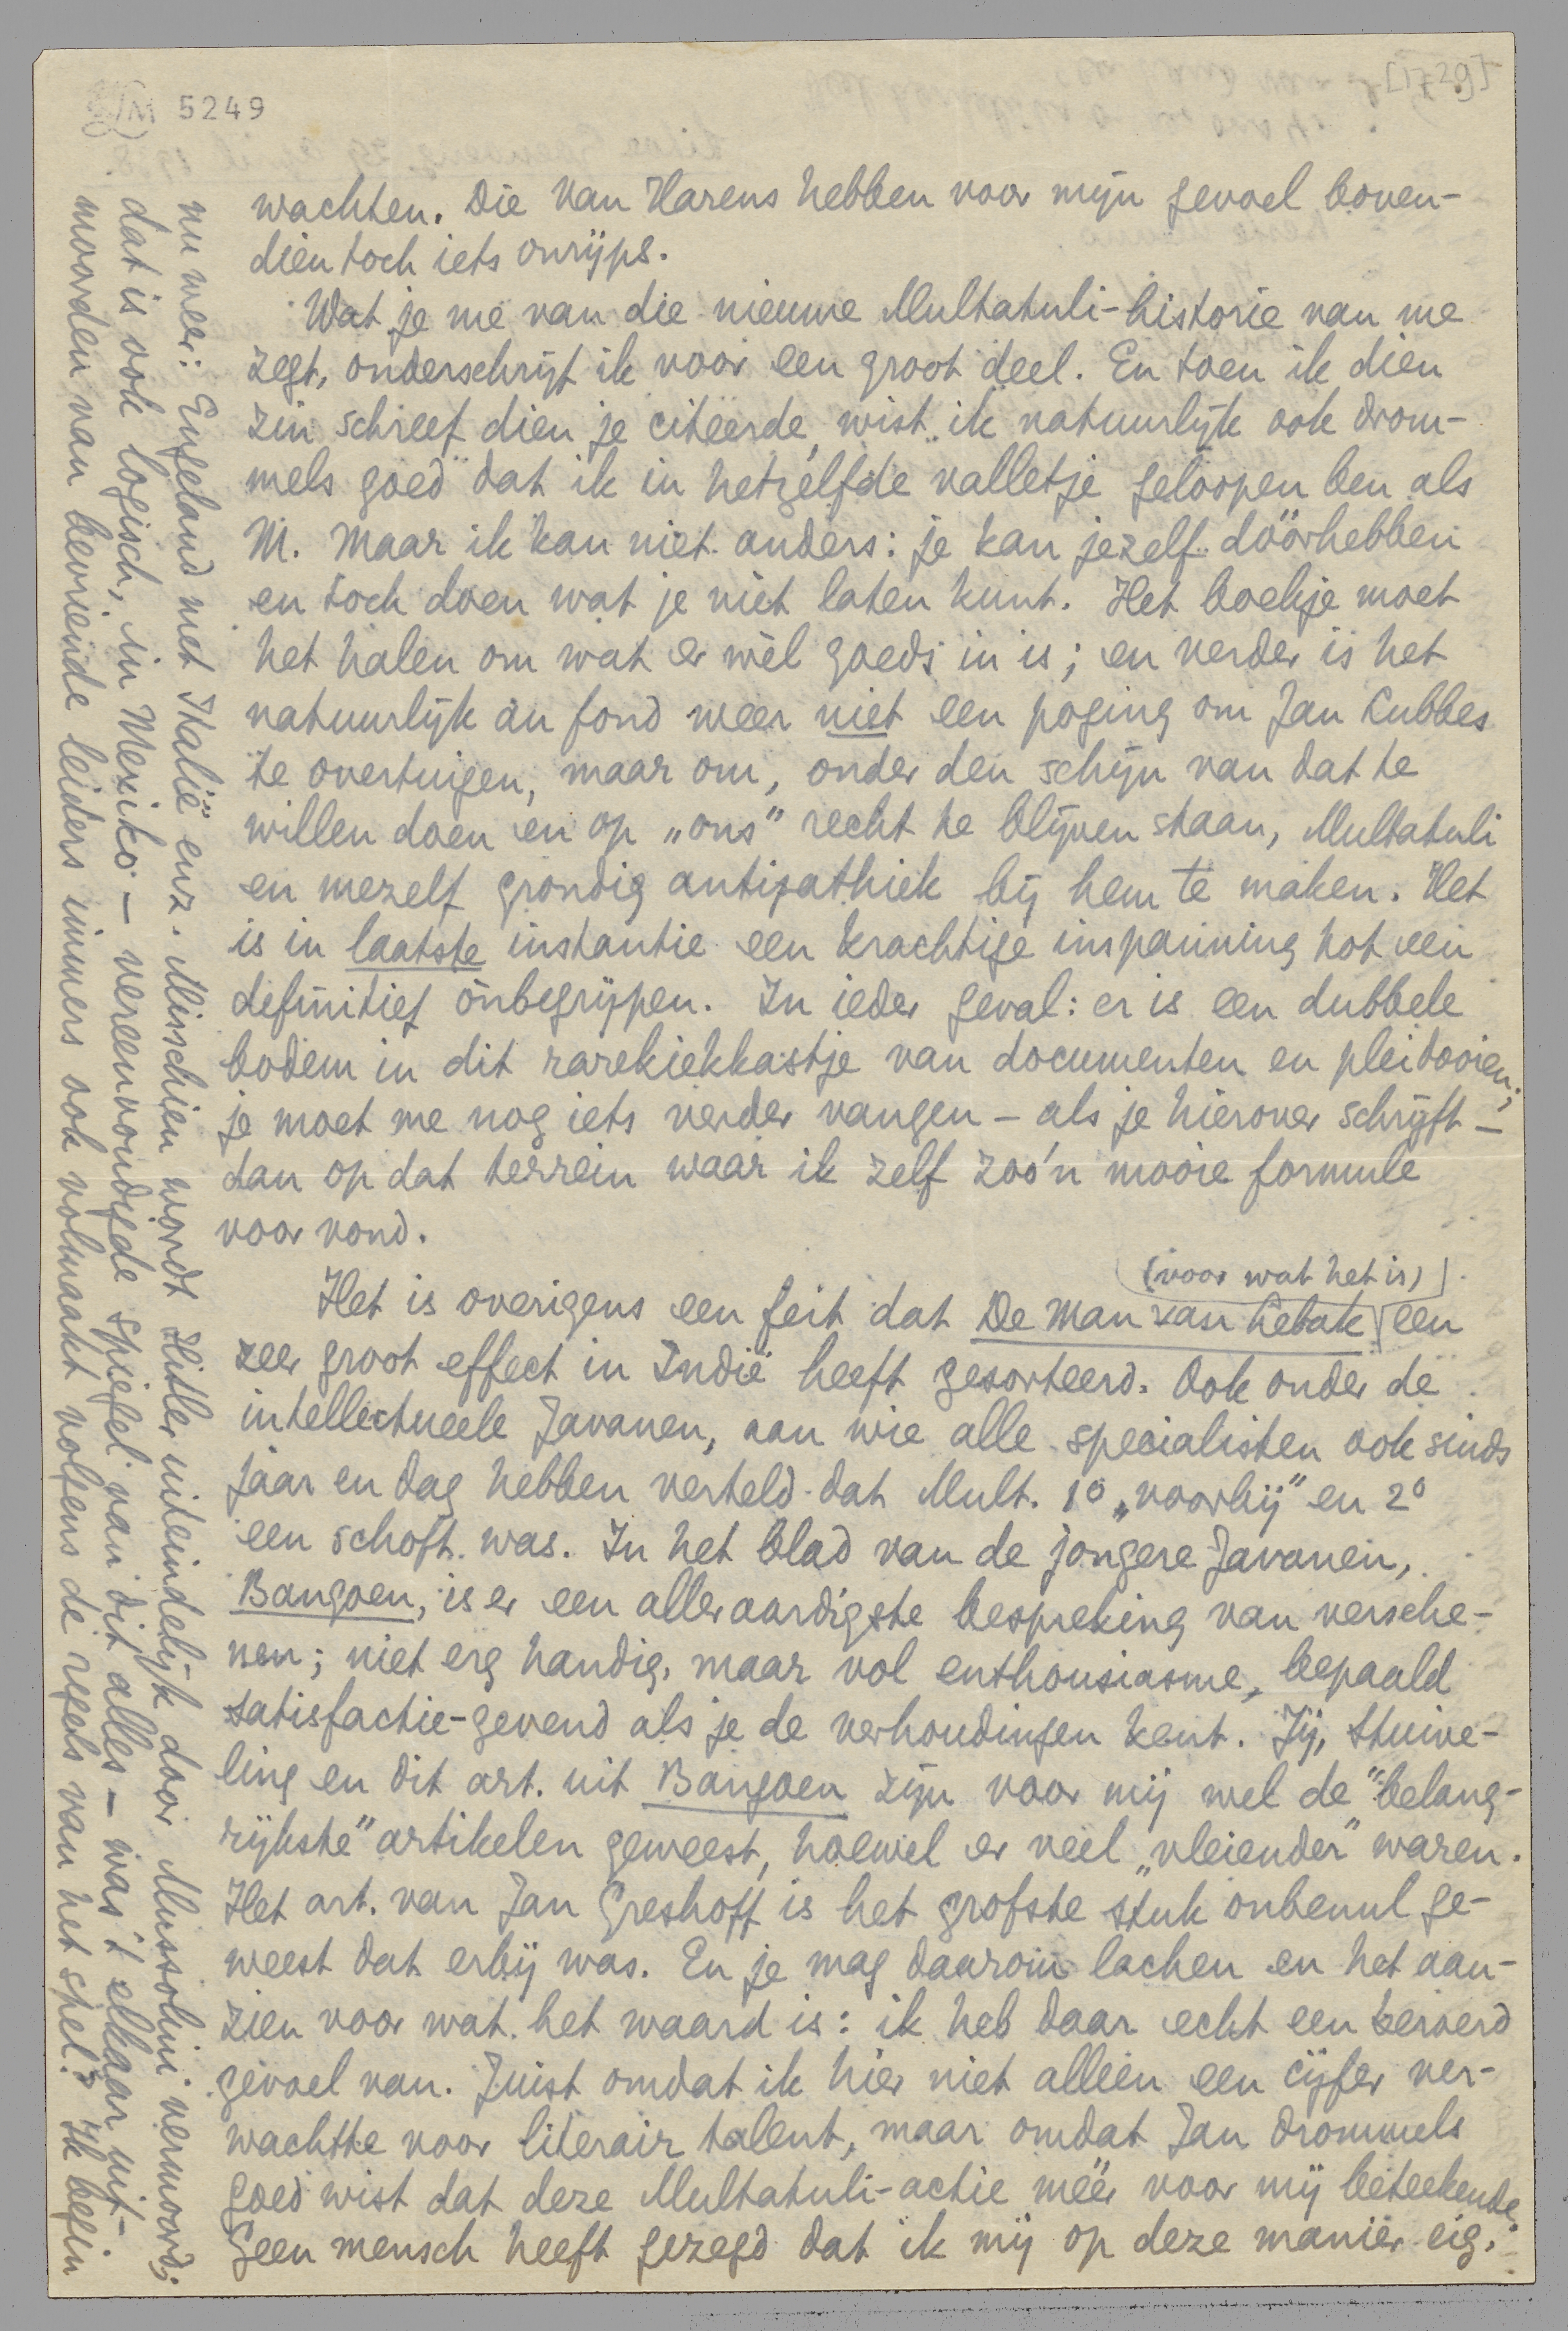 5249
[1729]
wachten. Die van Harens hebben voor mijn gevoel boven-
dien toch iets onrijps.
Wat je me van die nieuwe Multatuli-historie van me
zegt, onderschrijf ik voor een groot deel. En toen ik dien
zin schreef dien je citeerde, wist ik natuurlijk ook drom-
mels goed dat ik in hetzelfde valletje geloopen ben als
M. Maar ik kan niet anders: je kan jezelf dóórhebben
en toch doen wat je niet laten kunt. Het boekje moet
het halen om wat er wèl goeds in is; en verder is het
natuurlijk au fond weer niet een poging om Jan Lubbes
te overtuigen, maar om, onder den schijn van dat te
willen doen en op „ons" recht te blijven staan, Multatuli
en mezelf grondig antipathiek bij hem te maken. Het
is in laatste instantie een krachtige inspanning tot een
definitief ònbegrijpen. In ieder geval: er is een dubbele
bodem in dit rarekiekkastje van documenten en pleidooien;
je moet me nog iets verder vangen – als je hierover schrijft –
dan op dat terrein waar ik zelf zoo'n mooie formule
voor vond.
(voor wat het is)
Het is overigens een feit dat De Man van Lebak een
zeer groot effect in Indië heeft gesorteerd. Ook onder de
intellectueele Javanen, aan wie alle specialisten ook sinds
jaar en dag hebben verteld dat Mult. 1° „voorbij" en 2°
een schoft was. In het blad van de jongere Javanen,
Bangoen, is er een alleraardigste bespreking van versche-
nen; niet erg handig, maar vol enthousiasme, bepaald
satisfactie-gevend als je de verhoudingen kent. Jij, Stuive-
ling en dit art. uit Bangoen zijn voor mij wel de "belang-
rijkste" artikelen geweest, hoewel er veel „vleiender" waren.
Het art. van Jan Greshoff is het grofste stuk onbenul ge-
weest dat erbij was. En je mag daarom lachen en het aan-
zien voor wat het waard is: ik heb daar echt een
gevoel van. Juist omdat ik hier niet alleen een cijfer ver-
wachtte voor literair talent, maar omdat Jan drommels
goed wist dat deze Multatuli-actie méér voor mij beteekende.
Geen mensch heeft gezegd dat ik mij op deze manier eig.
nu weer: Engeland met Italië enz. Misschien wordt Hitler uiteindelijk door Mussolini vermoord;
dat is ook logisch, in Mexiko – vereenvoudigde spiegel van dit alles – was 't elkaar uit-
moorden van bevriende leiders immers ook volmaakt volgens de regels van het spel. Ik begin